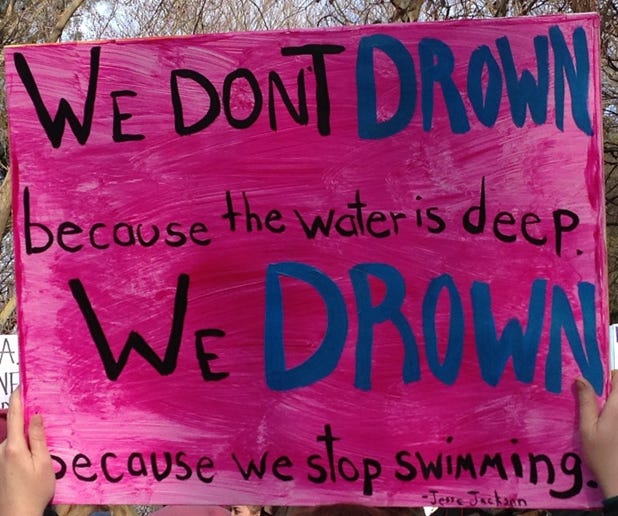 WE DON'T DROWN
because the water is deep.
WE DROWN
because we stop swimming.
-Jesse Jackson
A.